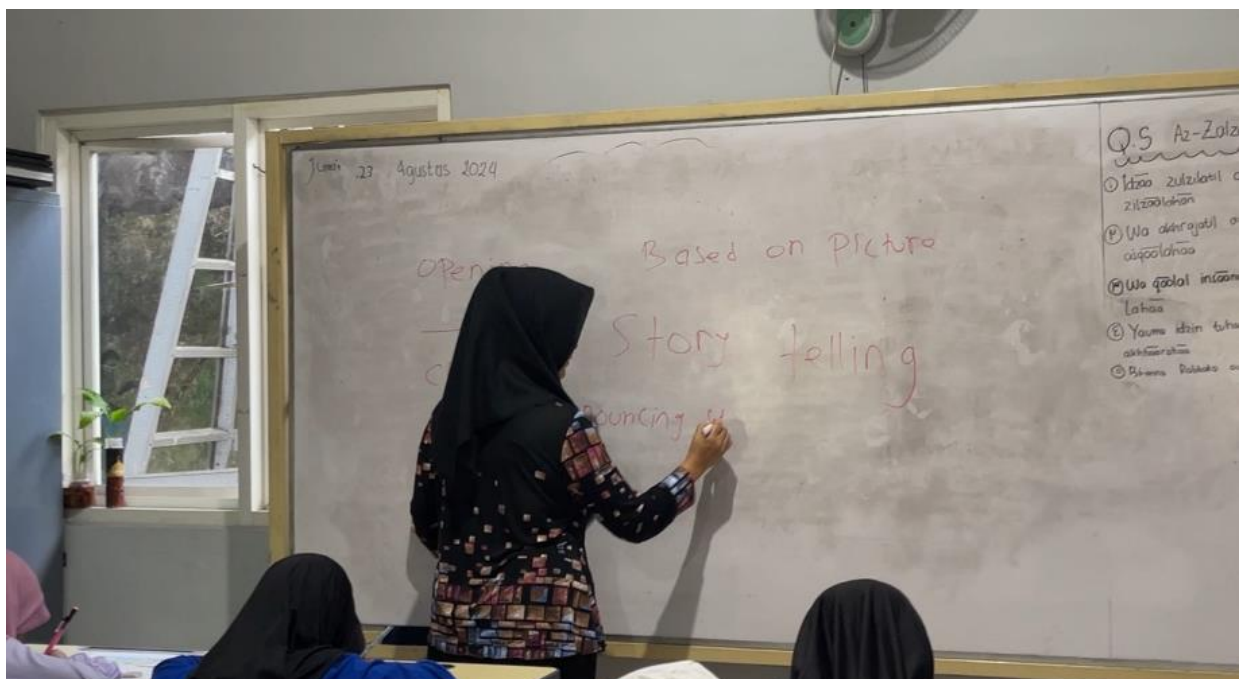 23 Agustus 2024
Based on Picture
Story telling
Q.S Az-Zalz
① Idzaa zulzilatil
zilzaalahaa
② Wa akhrajatil
asqaalahaa
③ Wa qaalal insaanu
Lahaa
④ Yauma idzin tuha
akhbaarahaa
⑤ Rabbaka